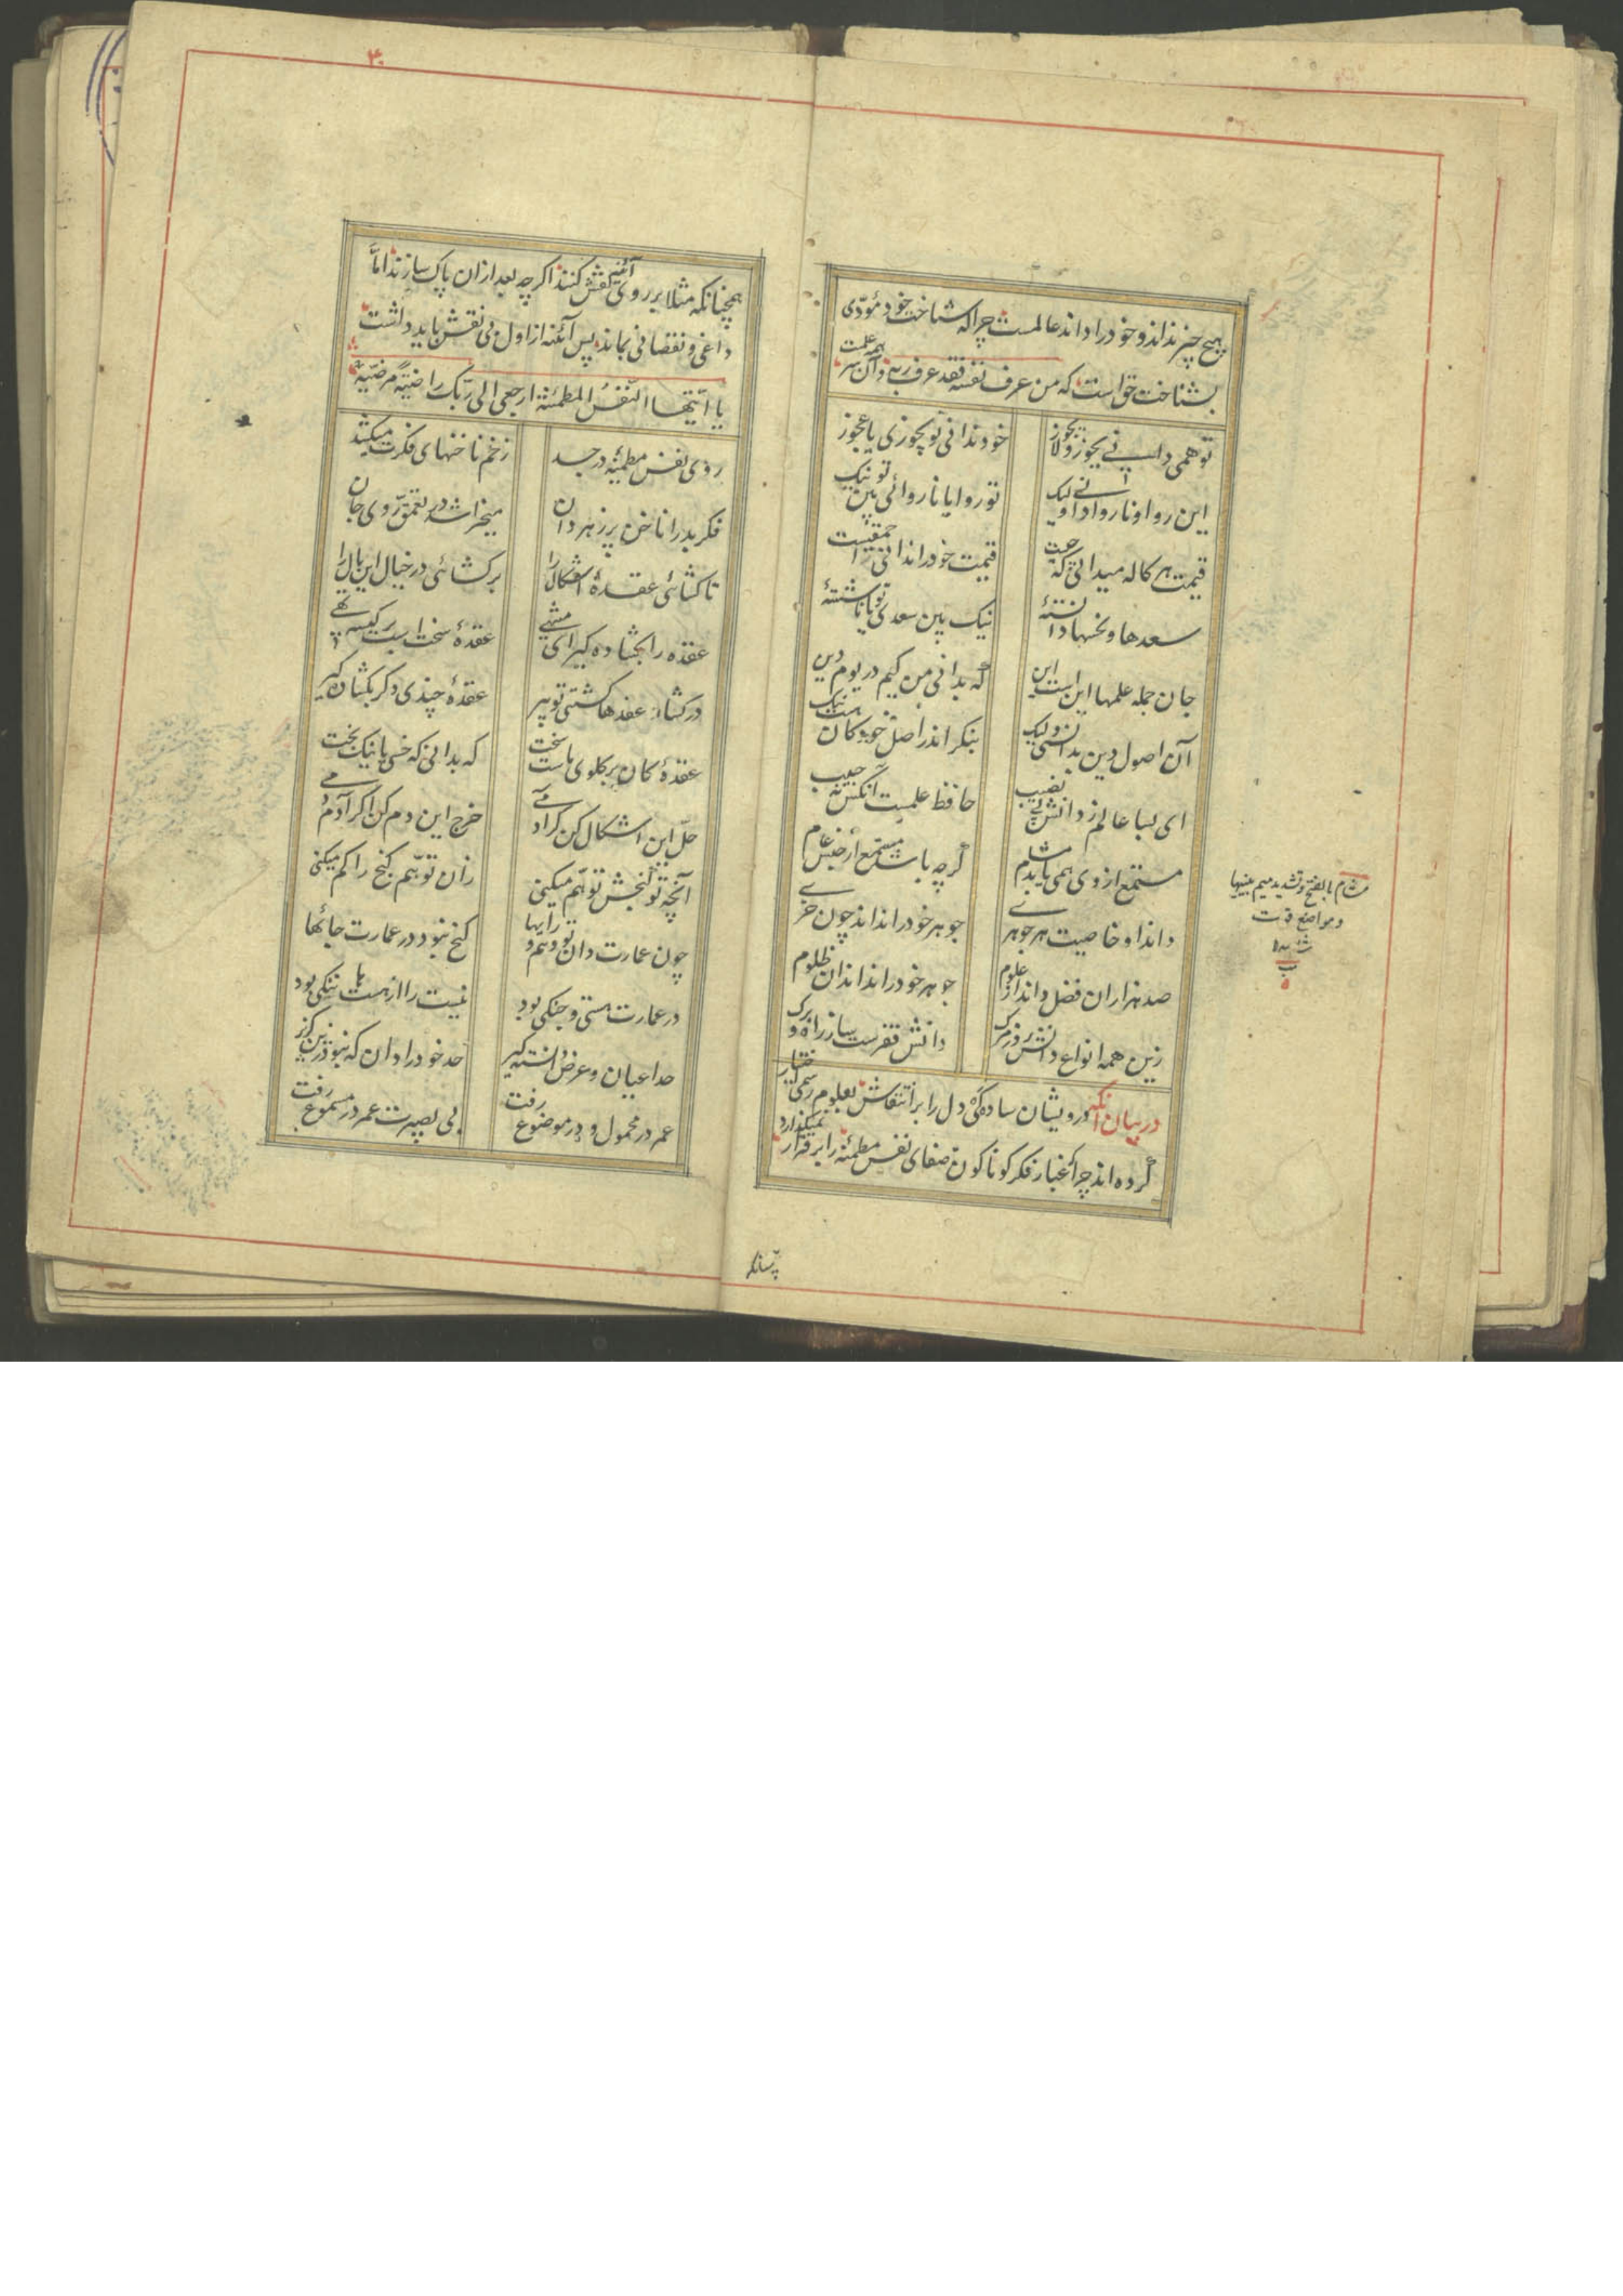 هیچ چیز نداند و خود را داند عالمست چرا که شناخت خود مؤدّی
بشناخت حق است که من عرف نفسه فقد عرف ربه و آن سر همه علمست
تو همی دانی یجوز و لا یجوز خود ندانی تو یجوزی یا عجوز
این روا و نا روا دانی ولیک تو روا یا نا روائی بین تو نیک
قیمت هر کاله میدانی که چیست قیمت خود را ندانی احمقیست
سعدها و نحسها دانستهٔ نیک بین سعدی تو یا ناشستهٔ
جان جمله علمها این است این که بدانی من کیم در یوم دین
آن اصول دین بدانستی ولیک بنگر اندر اصل خود کان هست نیک
ای بسا عالم ز دانش بی نصیب حافظ علمست آنکس نه حبیب
مستمع از وی همی یابد مشام گرچه باشد مستمع از جنس عام
داند او خاصیت هر جوهری جوهر خود را نداند چون خری
صد هزاران فضل داند از علوم جوهر خود را نداند آن ظلوم
زین همه انواع دانش روز مرگ دانش فقرست ساز راه و برگ
در بیان آنکه درویشان سادهگی دل را بر انتقاش بعلوم رسمی اختیار
کرده اند چرا که غبار فکر کوناکون صفای نفس مطمئنه را برقرار نمیگذارد
مشام بالفتح و تشدید میم بینیها
و مواضع قوت
شامه
چنانکه
۳۰
همچنانکه مثلا بر روی آئینه نقش کنند اگر چه بعد از ان پاک سازند اما
داغی و نقصانی بماند پس آئنه از اول بی نقش باید داشت
یا ایّتها النّفسُ المطمئنة ارجعی الی ربّک راضیةً مرضیّة
روی نفس مطمئنه در جسد زخم ناخنهای فکرت میکشد
فکر بد را ناخن پر زهر دان میخراشد در تعمّق روی جان
تا کشائی عقدهٔ اشکال را برکشائی در خیال این بال را
عقده را بکشاده گیر ای منتهی عقدهٔ سخت است بر کیسه تهی
در کشاد عقدها کشتی تو پیر عقدهٔ چندی دگر بکشاده گیر
عقدهٔ کان بر گلوی ماست سخت که بدانی که خسی یا نیک بخت
حلّ این اشکال کن گر آدمی خرج این دم کن اگر آدم دمی
آنچه تو گنجش توهّم میکنی زان توهّم گنج را گم میکنی
چون عمارت دان تو وهم و رایها گنج نبود در عمارت جائها
در عمارت هستی و جنگی بود نیست را از هست ها ننگی بود
حد اعیان و عرض دانسته گیر حد خود را دان که نبود زین گزیر
عمر در محمول و در موضوع رفت بی بصیرت عمر در مسموع رفت